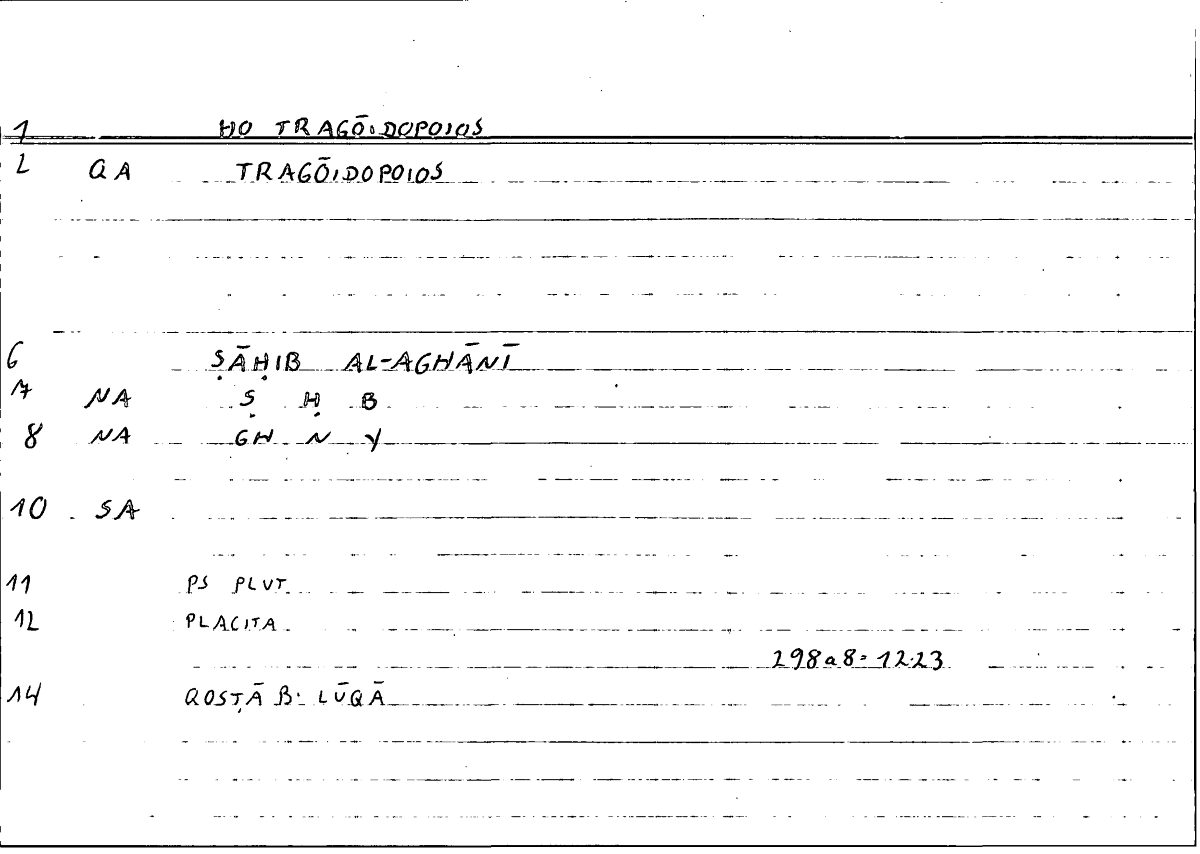 1 HO TRAGŌIDOPOIOS
2 QA TRAGŌIDOPOIOS
6 ṢĀḤIB AL-AGHĀNĪ
7 NA Ṣ Ḥ B
8 NA GH N Y
10 SA
11 PS PLUT
12 PLACITA
298a8=12.23
14 QOSṬĀ B. LŪQĀ